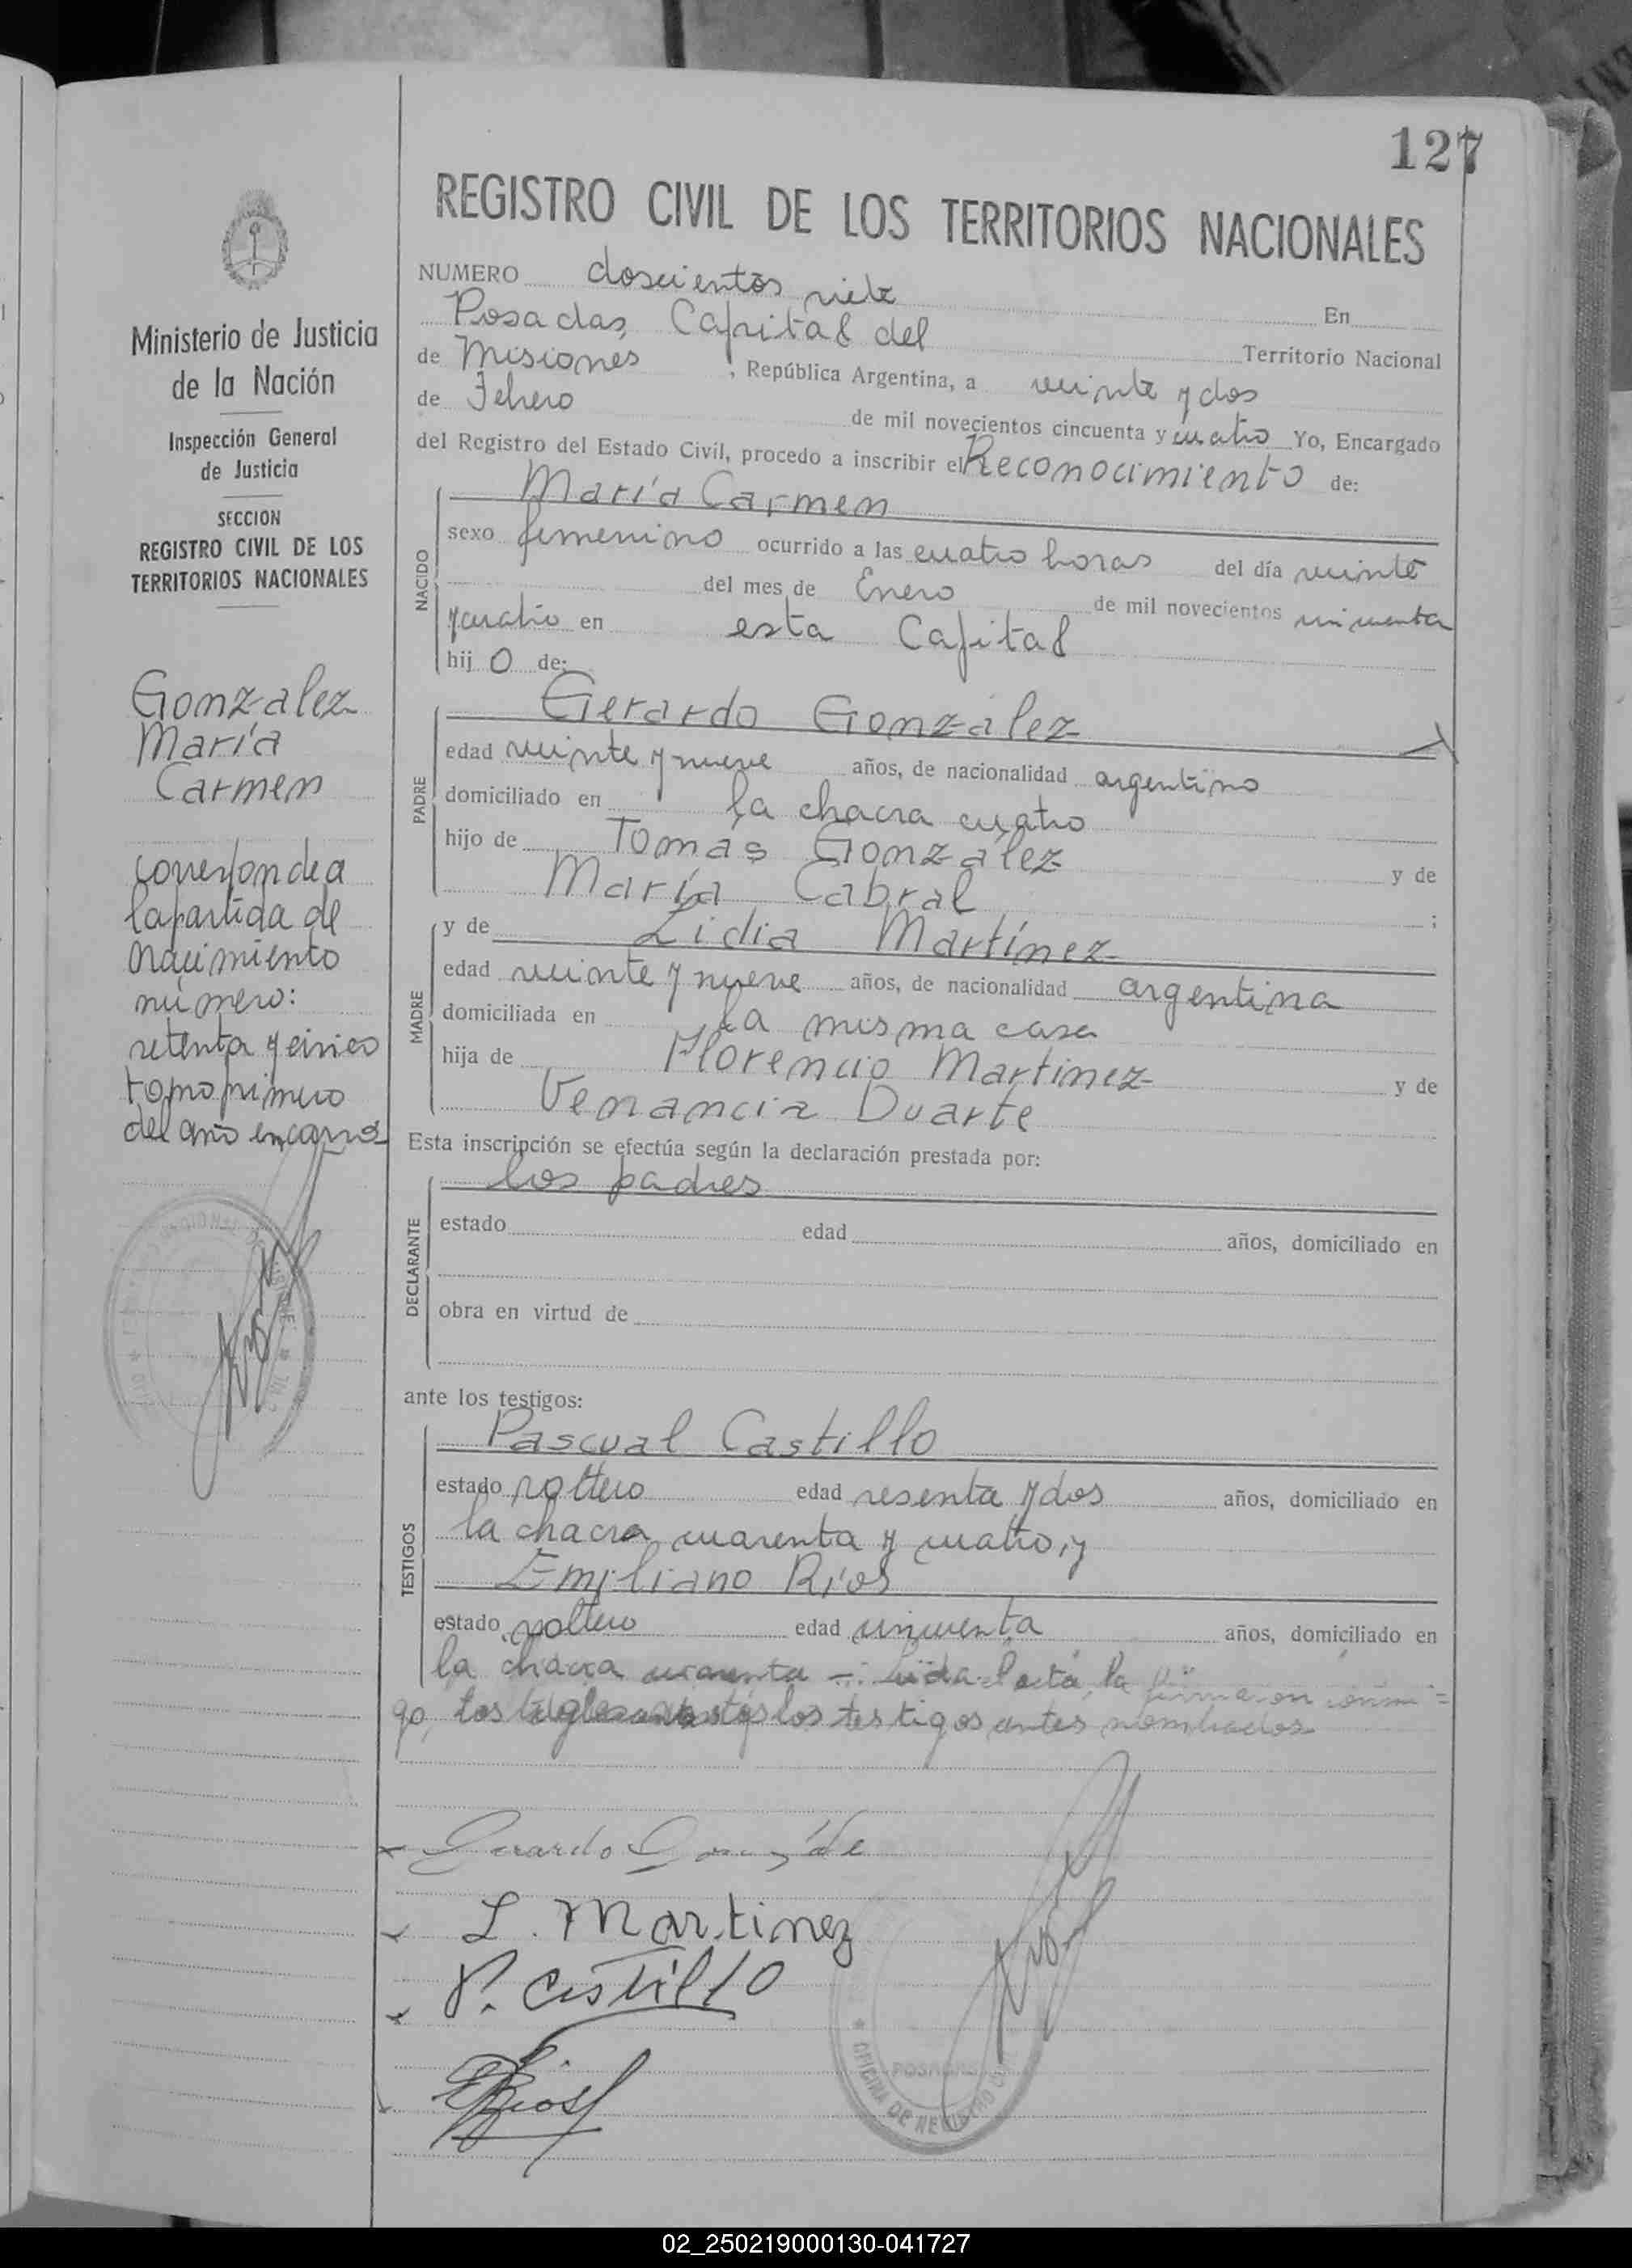 127
REGISTRO CIVIL DE LOS TERRITORIOS NACIONALES
NUMERO doscientos siete
En
Posadas, Capital del Territorio Nacional
de Misiones, República Argentina, a veinte y dos
de Febrero de mil novecientos cincuenta y cuatro Yo, Encargado
del Registro del Estado Civil, procedo a inscribir el Reconocimiento de:
NACIDO
María Carmen
sexo femenino ocurrido a las cuatro horas del día veinte
del mes de Enero de mil novecientos cincuenta
y cuatro en esta Capital
hij o de:
PADRE
Gerardo González
edad veinte y nueve años, de nacionalidad argentino
domiciliado en la chacra cuatro
hijo de Tomás González y de
María Cabral ;
MADRE
y de Lidia Martínez
edad veinte y nueve años, de nacionalidad argentina
domiciliada en la misma casa
hija de Florencio Martinez y de
Venancia Duarte
Esta inscripción se efectúa según la declaración prestada por:
DECLARANTE
los padres
estado edad años, domiciliado en
obra en virtud de
ante los testigos:
TESTIGOS
Pascual Castillo
estado soltero edad sesenta y dos años, domiciliado en
la chacra cuarenta y cuatro, y
Emiliano Ríos
estado soltero edad cincuenta años, domiciliado en
la chacra cuarenta leída el acta, la firmaron conmi=
go, los testigos antes nombrados
Gerardo
L. Martinez
P. Castillo
E. Rios
POSADAS
OFICINA DE REGISTRO
Ministerio de Justicia
de la Nación
Inspección General
de Justicia
SECCION
REGISTRO CIVIL DE LOS
TERRITORIOS NACIONALES
Gonzalez
María
Carmen
corresponde a
la partida de
nacimiento
número:
setenta y cinco
tomo primero
del año en curso
02_250219000130-041727